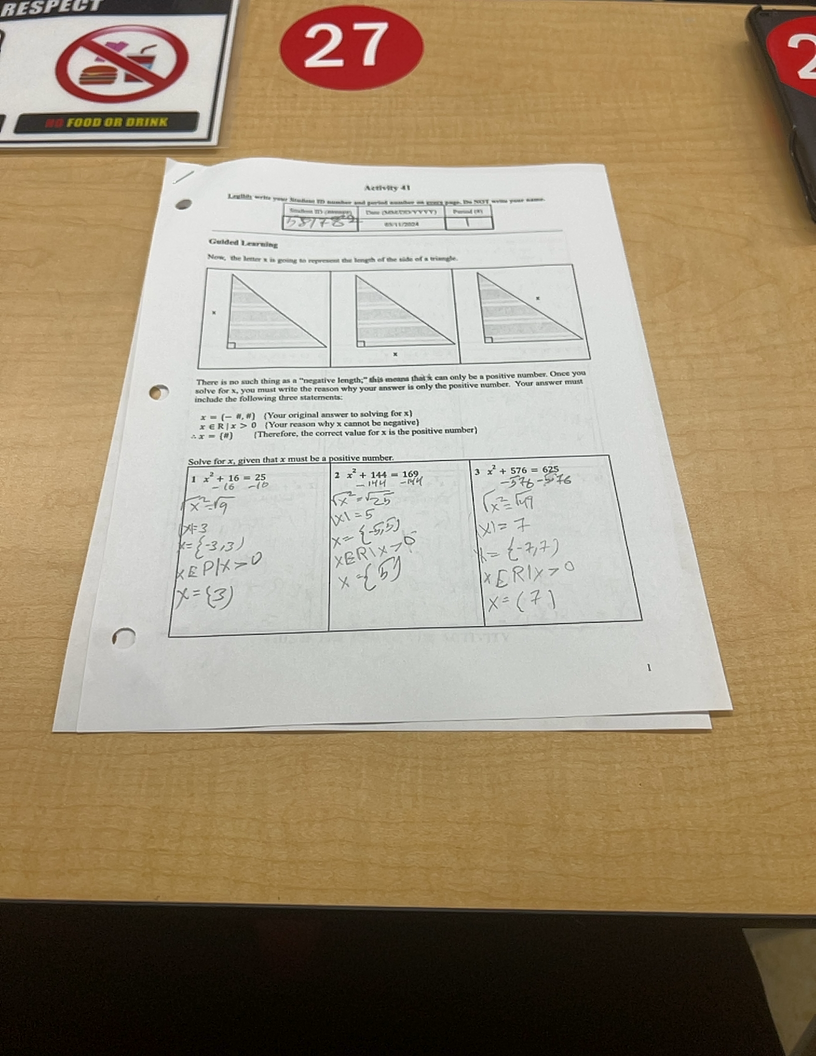 RESPECT
NO FOOD OR DRINK
27
2
Activity 41
Legibly write your Student ID number and period number on every page. Do NOT write your name.
Student ID (######) Date (MM/DD/YYYY) Period (#)
03/11/2024 1
Guided Learning
Now, the letter x is going to represent the length of the side of a triangle.
x
x
x
There is no such thing as a "negative length;" this means that x can only be a positive number. Once you
solve for x, you must write the reason why your answer is only the positive number. Your answer must
include the following three statements:
x = {− #, #} (Your original answer to solving for x)
x ∈ R | x > 0 (Your reason why x cannot be negative)
∴ x = {#} (Therefore, the correct value for x is the positive number)
Solve for x, given that x must be a positive number.
1 x² + 16 = 25
-16 -16
√x² = √9
|x|=3
x={-3,3}
xER|x>0
x={3}
2 x² + 144 = 169
-144 -144
√x² = √25
|x|=5
x={-5,5}
xER|x>0
x={5}
3 x² + 576 = 625
-576 -576
√x² = √49
|x|=7
x={-7,7}
xER|x>0
x={7}
1